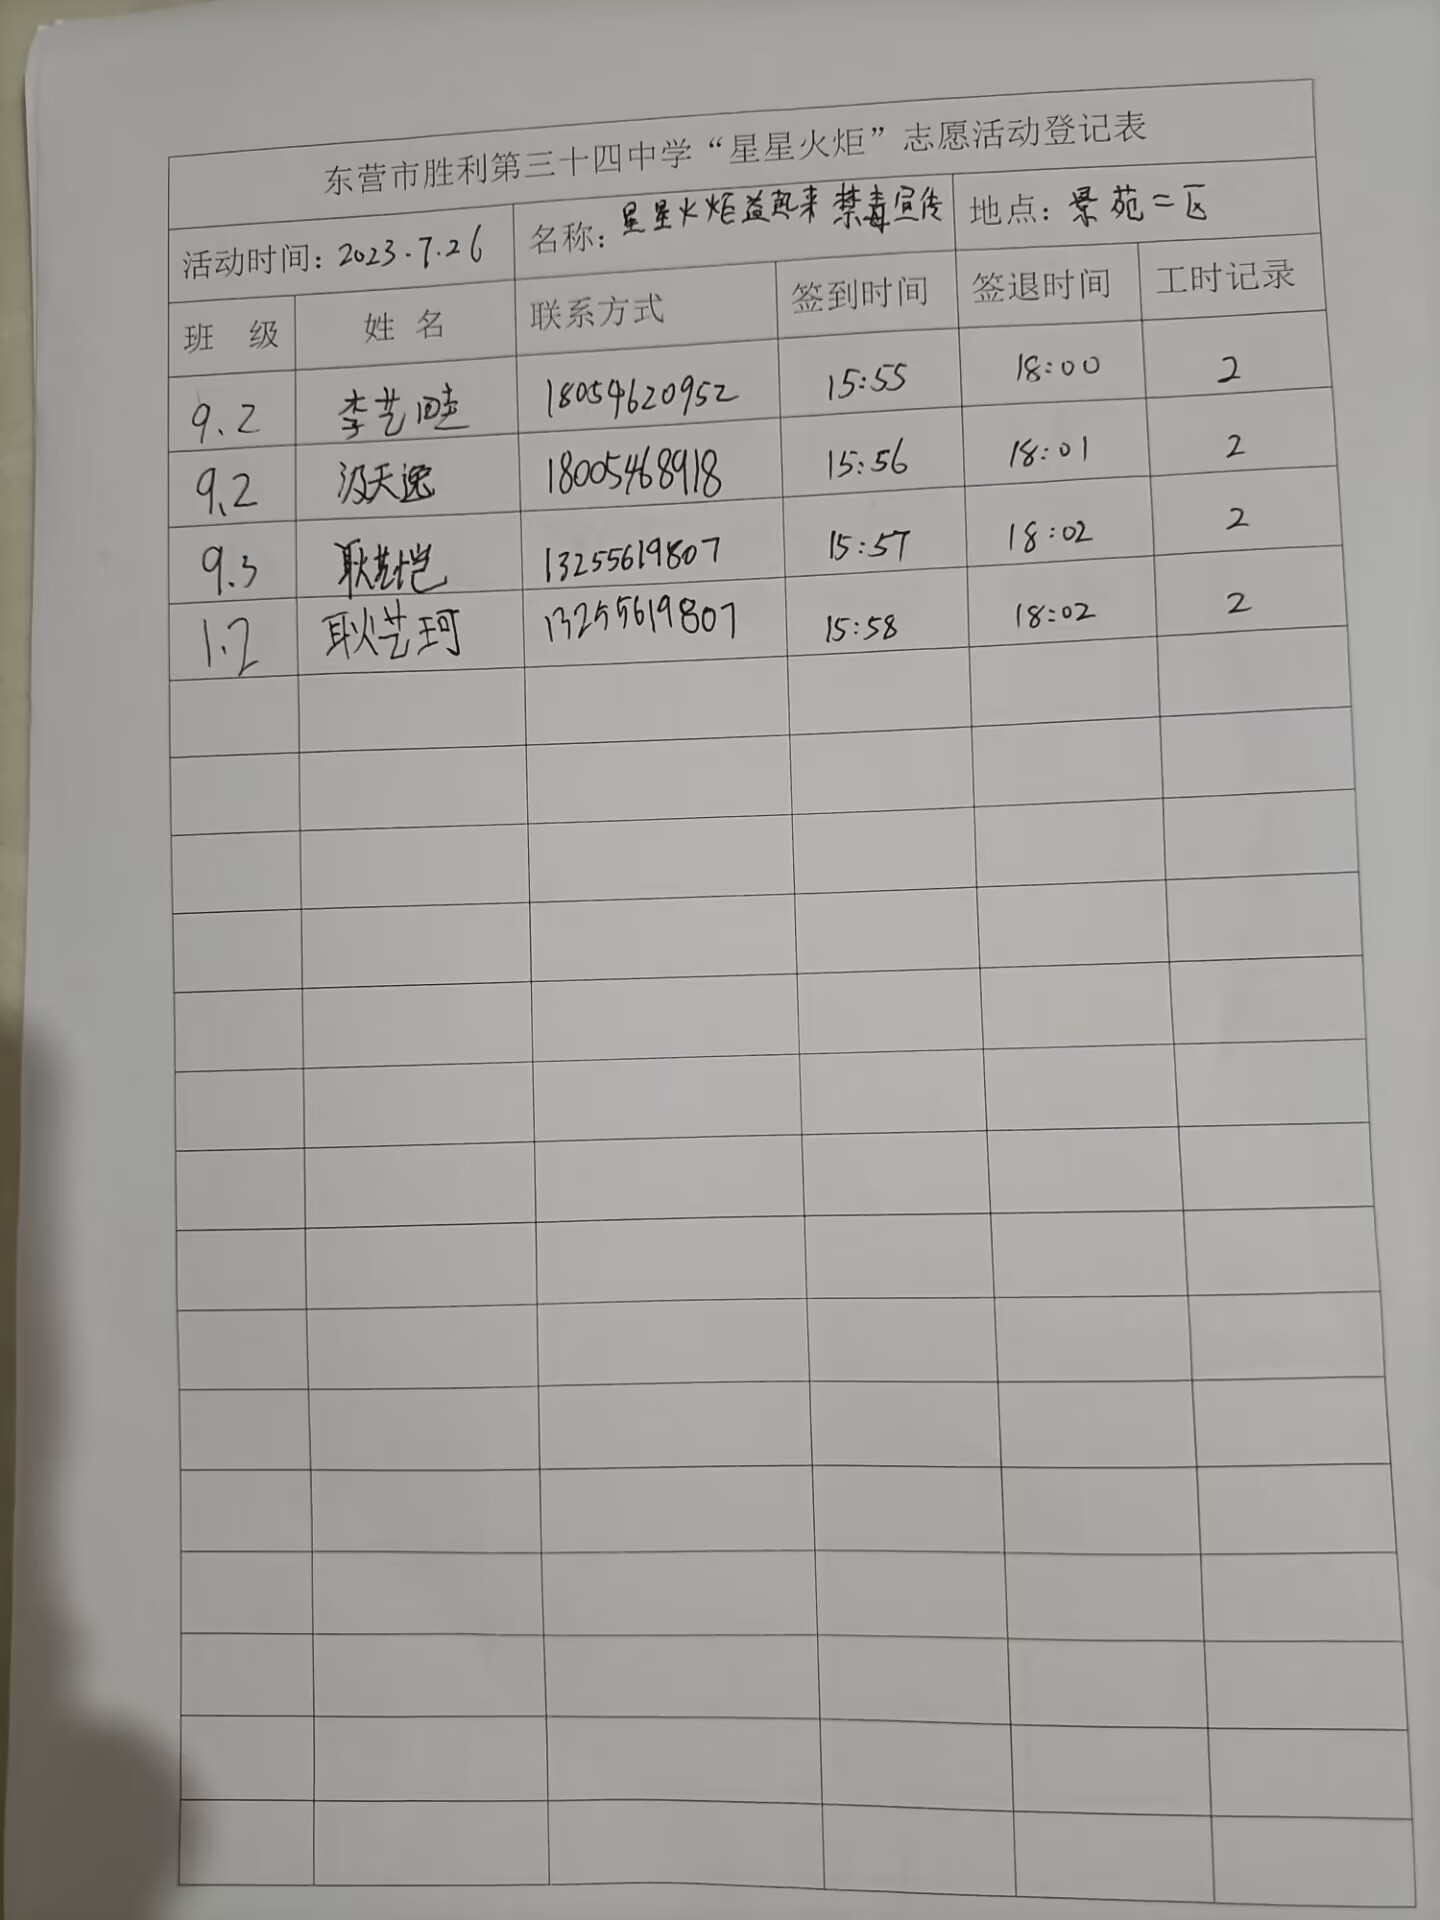 东营市胜利第三十四中学“星星火炬”志愿活动登记表
活动时间：2023.7.26 名称：星星火炬益起来 禁毒宣传 地点：景苑二区
班 级 姓 名 联系方式 签到时间 签退时间 工时记录
9.2 李艺畦 18054620952 15:55 18:00 2
9.2 汲天逸 18005468918 15:56 18:01 2
9.3 耿艺恺 13255619807 15:57 18:02 2
1.2 耿艺珂 13255619807 15:58 18:02 2